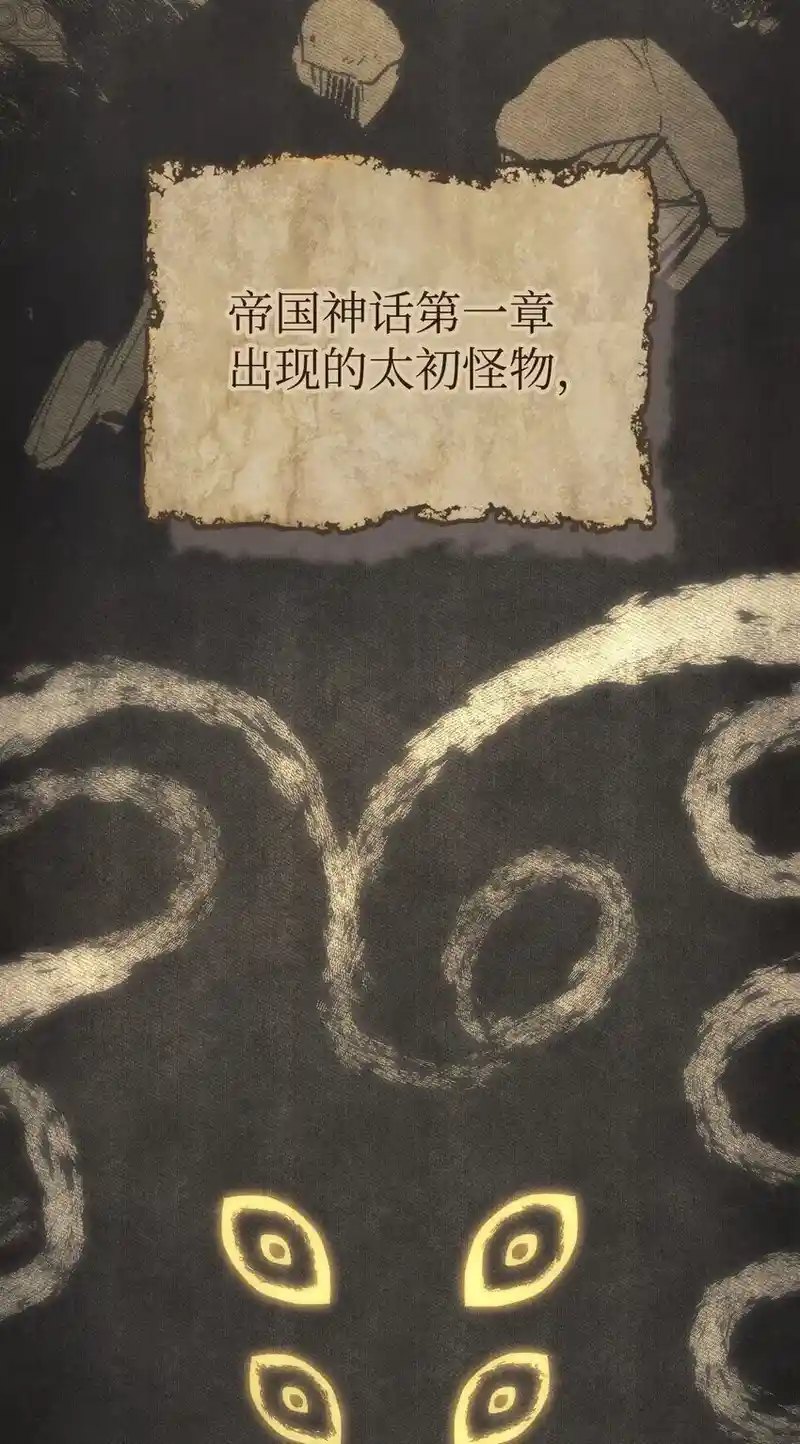 帝国神话第一章
出现的太初怪物,